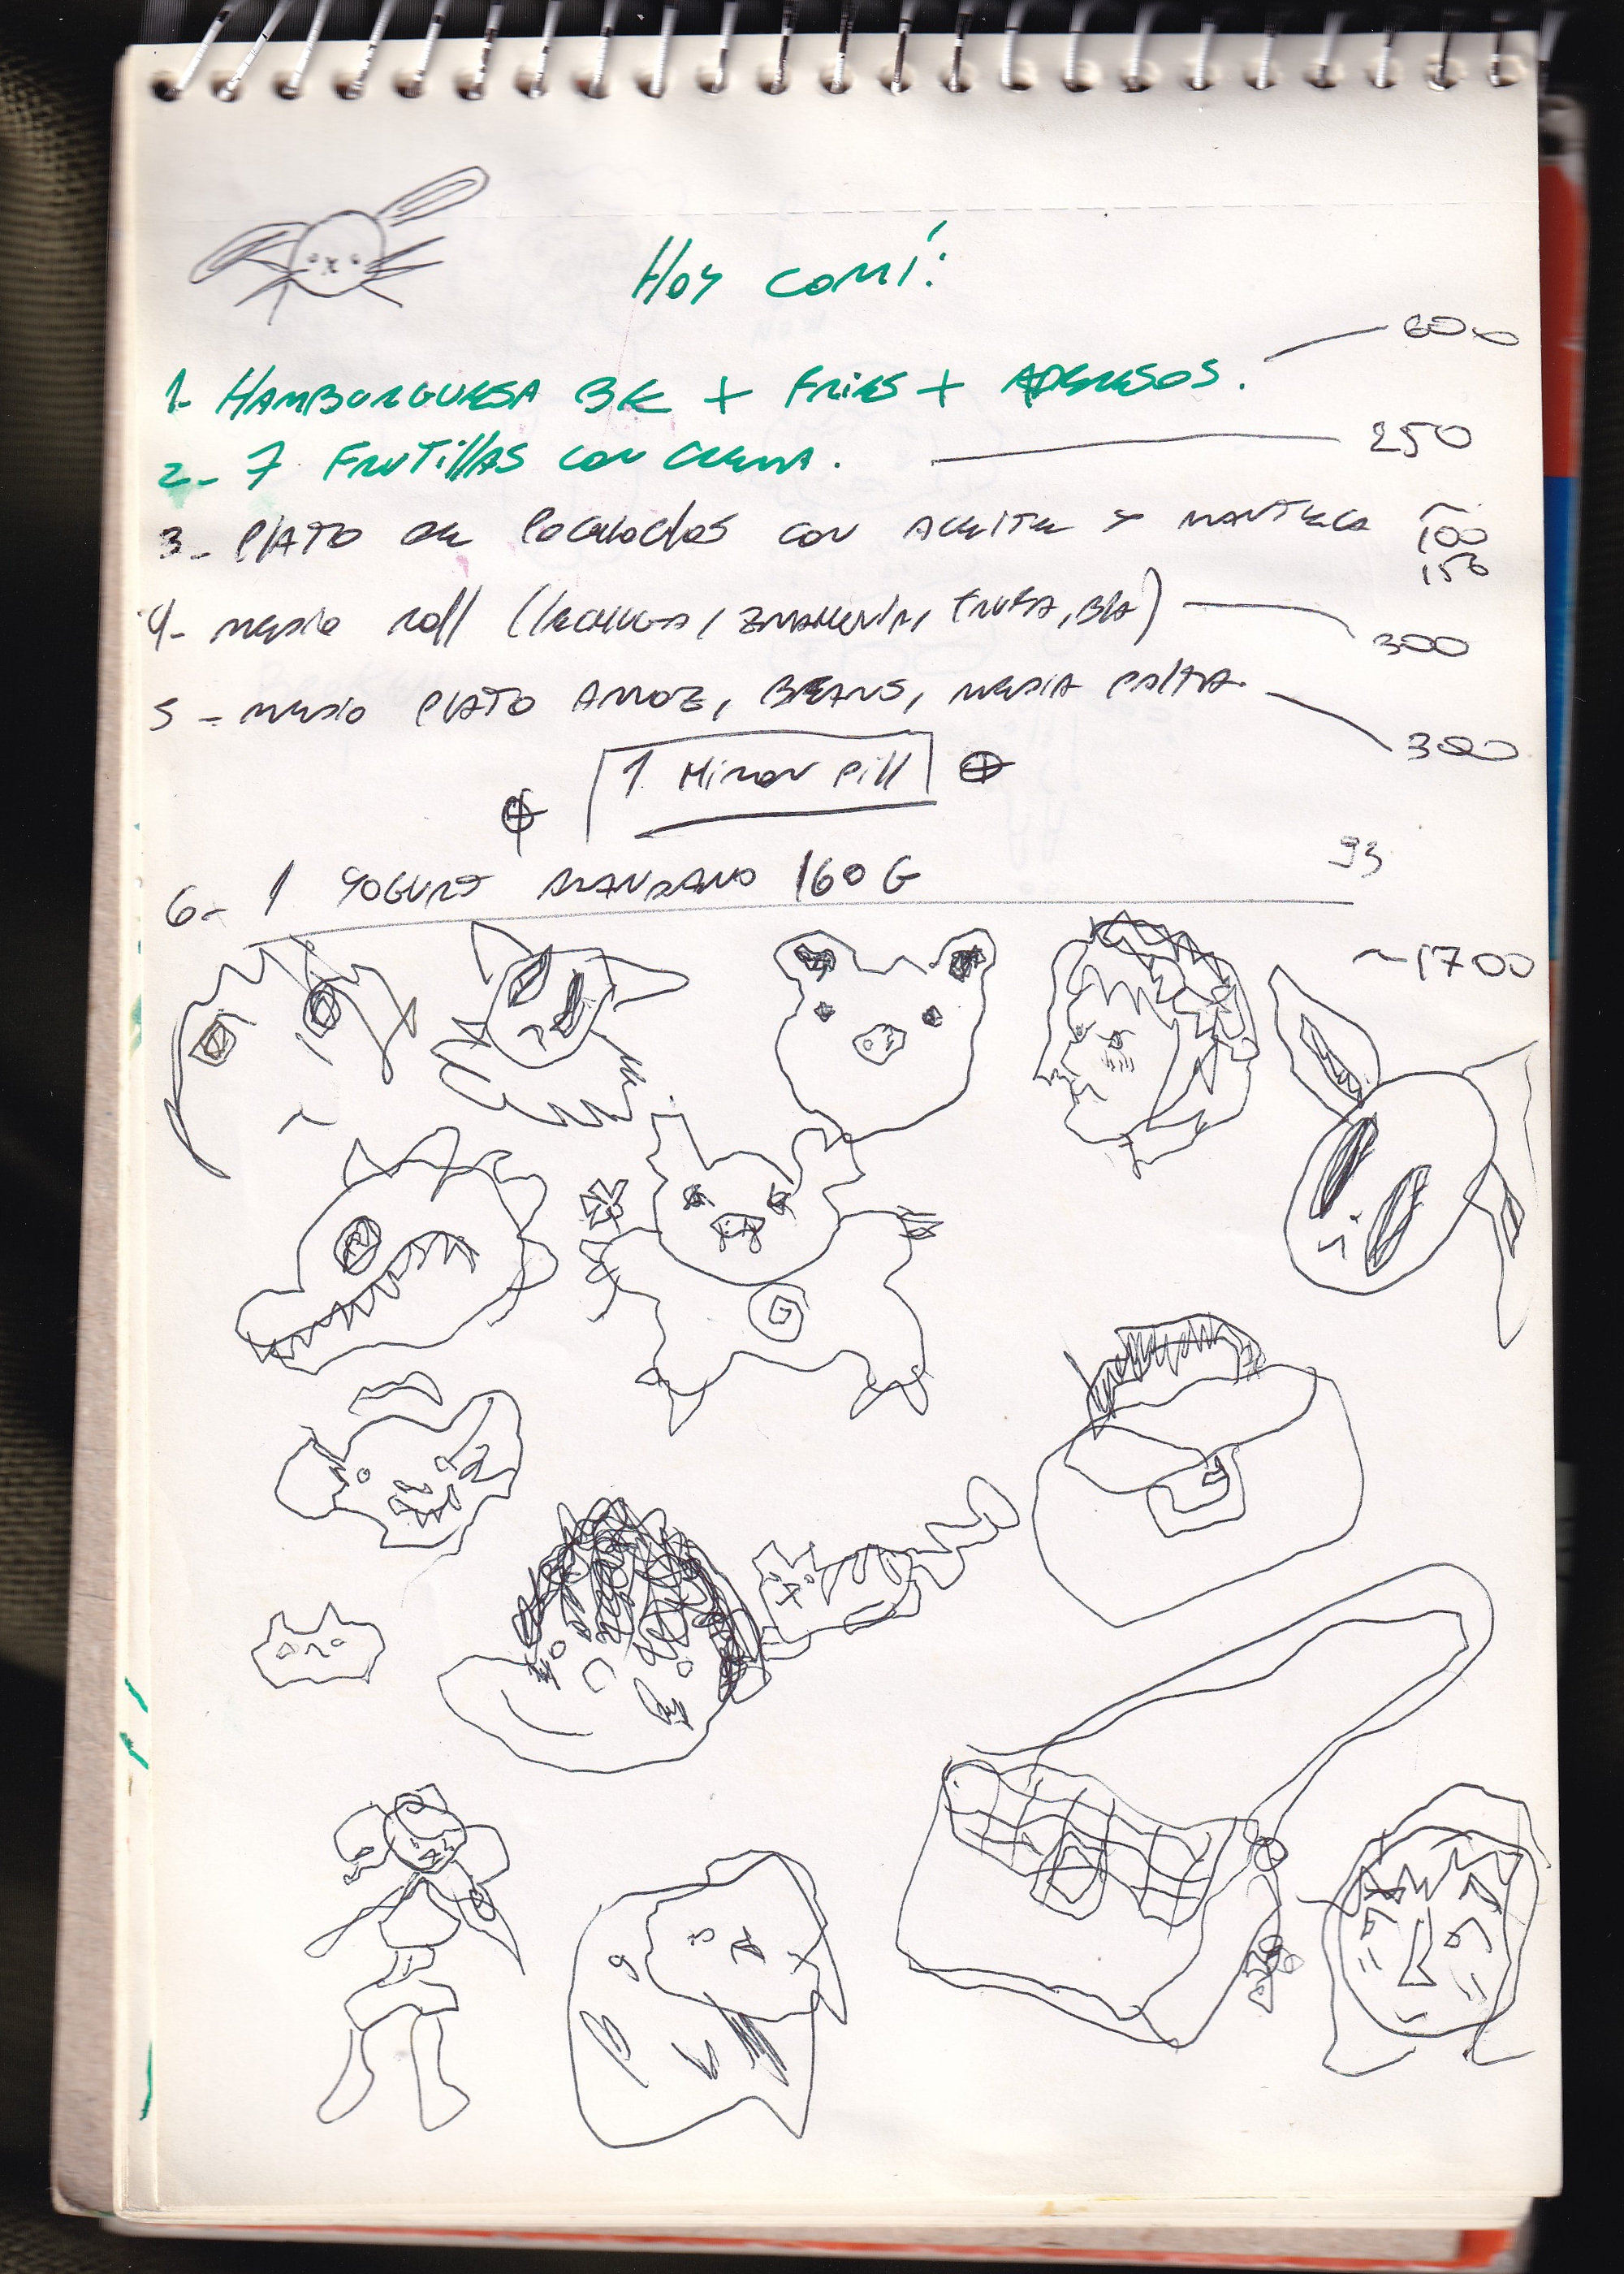 Hoy comí:
1- HAMBURGUESA BK + FRIES + ADERESOS. — 600
2- 7 FRUTILLAS CON CREMA. — 250
3- PLATO DE POCHOCLOS CON ACEITE Y MANTECA ~ 100
150
4- MEDIO ROLL (LECHUGA, ZANAHORIA, TRUFA, BLA) — 300
5- MEDIO PLATO ARROZ, BEANS, MEDIA PALTA. — 300
1 Minor Pill
6- 1 YOGURT MANZANO 160 G 93
~1700